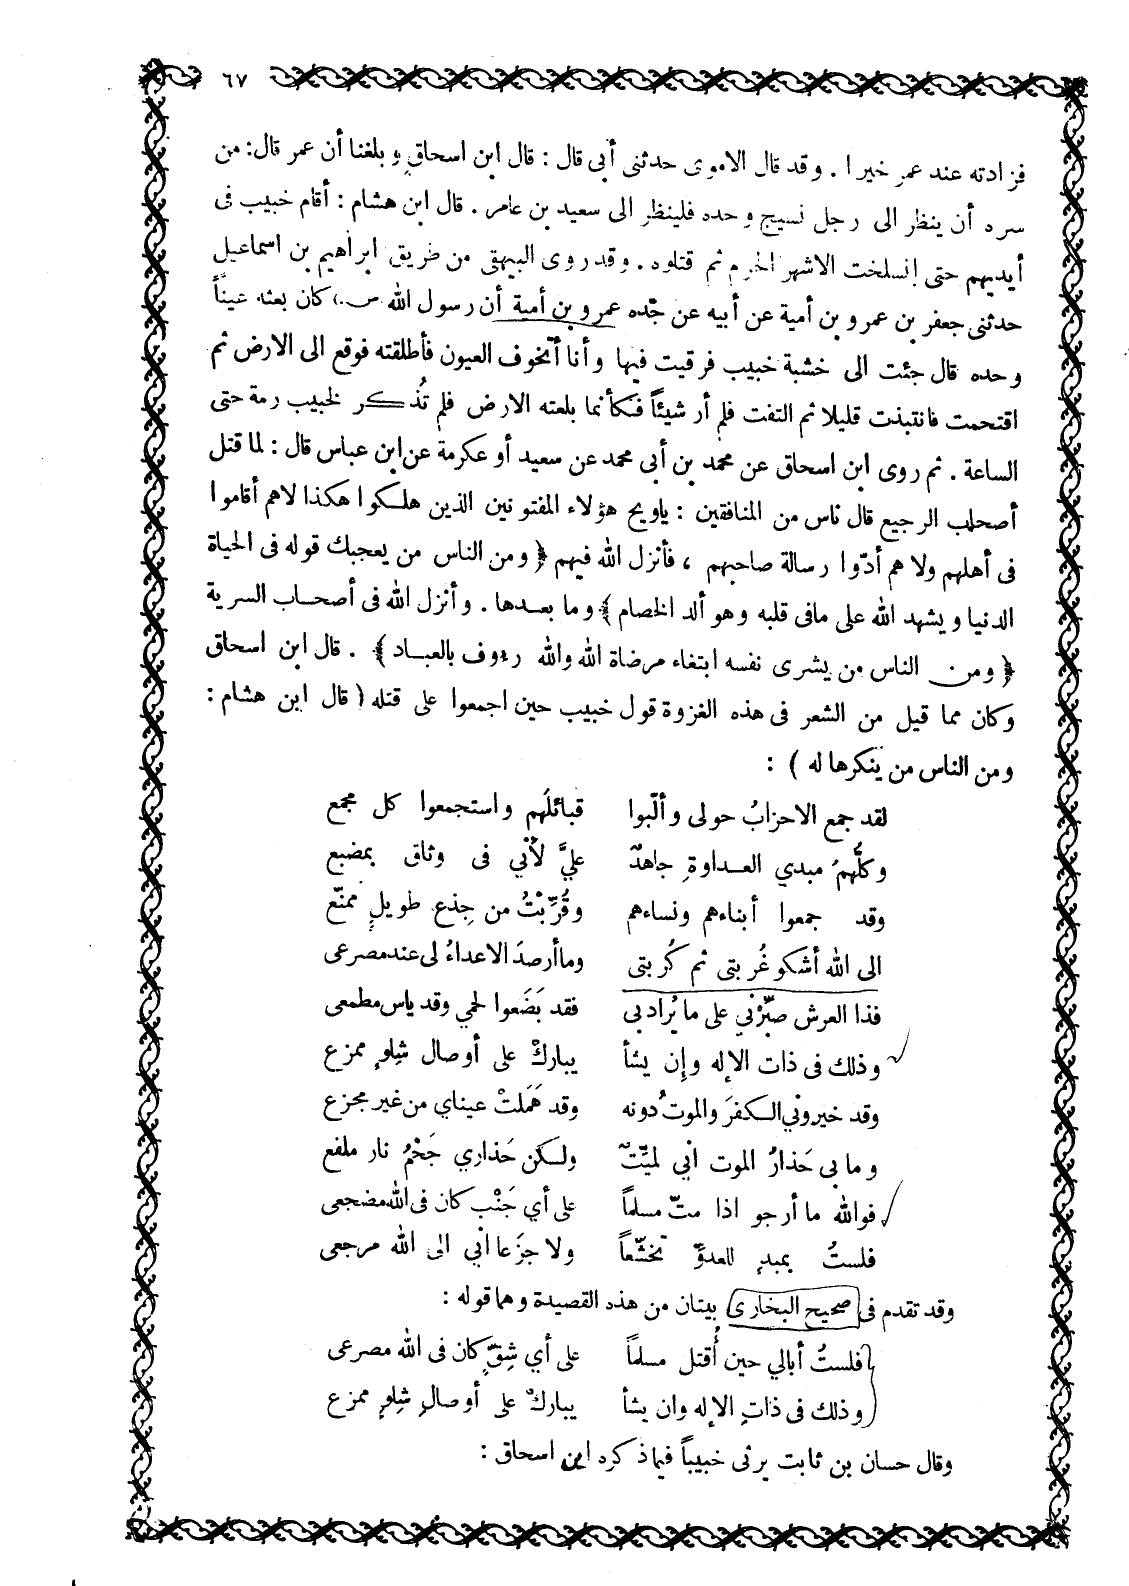 ٦٧
فزادته عند عمر خيرا . وقد قال الاموى حدثنى أبى قال : قال ابن اسحاق وبلغنا أن عمر قال : من
سره أن ينظر الى رجل نسيج وحده فلينظر الى سعيد بن عامر . قال ابن هشام : أقام خبيب فى
أيديهم حتى إنسلخت الاشهر الحرم ثم قتلوه . وقد روى البيهقى من طريق ابراهيم بن اسماعيل
حدثنى جعفر بن عمرو بن أمية عن أبيه عن جّده عمرو بن أمية أن رسول الله ص.) كان بعثه عيناً
وحده قال جئت الى خشبة خبيب فرقيت فيها وأنا أتخوف العيون فأطلقته فوقع الى الارض ثم
اقتحمت فانتبذت قليلا ثم التفت فلم أر شيئاً فكأنما بلعته الارض فلم تُذكر لخبيب رمة حتى
الساعة . ثم روى ابن اسحاق عن محمد بن أبى محمد عن سعيد أو عكرمة عن ابن عباس قال : لما قتل
أصحاب الرجيع قال ناس من المنافقين : ياويح هؤلاء المفتونين الذين هلكوا هكذا لاهم أقاموا
فى أهلهم ولا هم أدّوا رسالة صاحبهم ، فأنزل الله فيهم ﴿ ومن الناس من يعجبك قوله فى الحياة
الدنيا ويشهد الله على مافى قلبه وهو ألد الخصام ﴾ وما بعدها . وأنزل الله فى أصحاب السرية
﴿ ومن الناس من يشرى نفسه ابتغاء مرضاة الله والله رءوف بالعباد ﴾ . قال ابن اسحاق
وكان مما قيل من الشعر فى هذه الغزوة قول خبيب حين اجمعوا على قتله ( قال ابن هشام :
ومن الناس من ينكرها له ) :
لقد جمع الاحزابُ حولى وألّبوا قبائلَهم واستجمعوا كل مجمع
وكلُّهمُ مبدي العداوةِ جاهدٌ عليَّ لأني فى وثاق بمضبع
وقد جمعوا أبناءهم ونساءهم وقُرِّبْتُ من جِذع طويلٍ ممنّع
الى الله أشكو غُربتى ثم كُربتى وما أرصدَ الاعداءُ لى عند مصرعى
فذا العرش صبِّرْني على ما يُراد بى فقد بَضَعوا لحمي وقد ياس مطمعى
وذلك فى ذات الإله وإن يشأ يباركْ على أوصال شِلوٍ ممزع
وقد خيروني الكفرَ والموتُ دونه وقد هَمَلتْ عيناي من غير مجزع
وما بى حَذارُ الموت اني لميّتٌ ولكن حَذاري جَحْمُ نار ملفع
فوالله ما أرجو اذا متّ مسلماً على أي جَنْب كان فى الله مضجعى
فلستُ بمبدٍ للعدوِّ تخشّعاً ولا جزَعا اني الى الله مرجعى
وقد تقدم فى صحيح البخارى بيتان من هذه القصيدة وهما قوله :
فلستُ أبالي حين أُقتل مسلماً على أي شِقٍّ كان فى الله مصرعى
وذلك فى ذاتِ الإله وان يشأ يباركْ على أوصالِ شِلوٍ ممزع
وقال حسان بن ثابت يرثى خبيباً فيما ذكره ابن اسحاق :